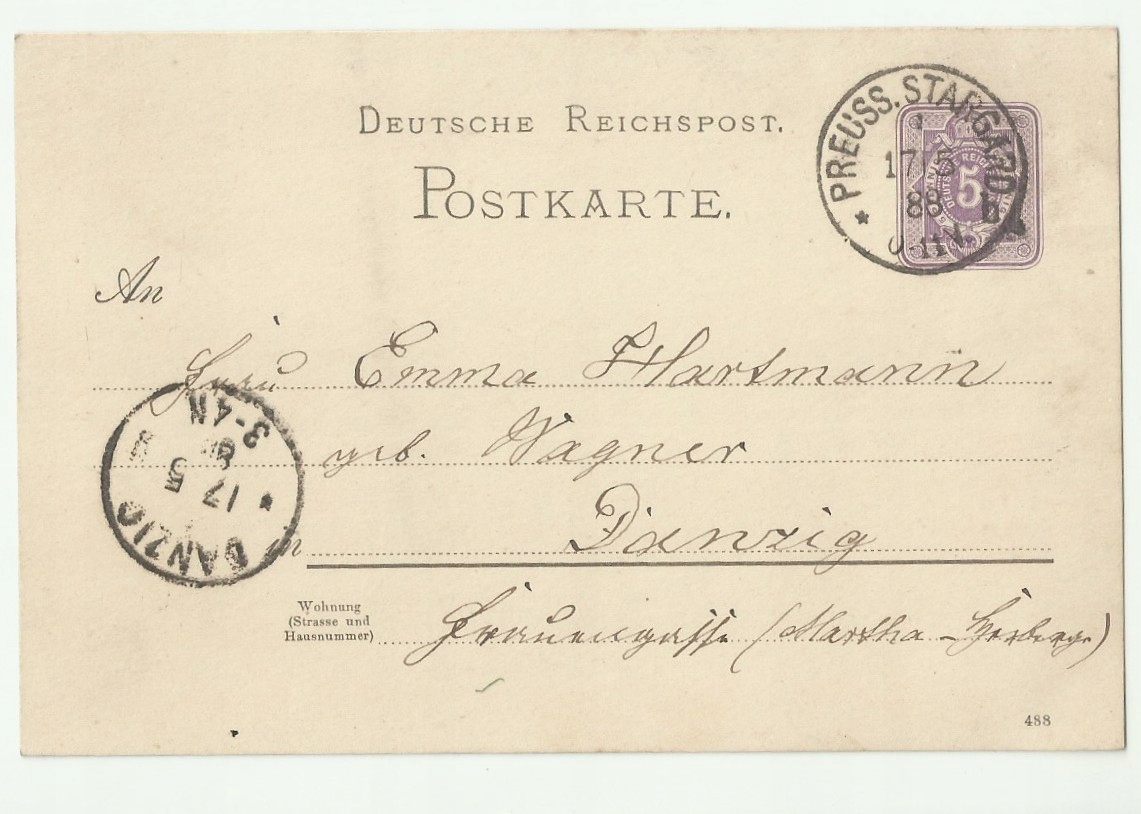 DEUTSCHE REICHSPOST.
POSTKARTE.
PREUSS. STARGARD
17 5
88
DEUTSCHE REICHSPOST
5
An
Frau Emma Hartmann
geb. Wagner
in Danzig
Wohnung
(Strasse und
Hausnummer)
Frauengasse (Martha-Herberge)
DANZIG
17 5
3-4N
488